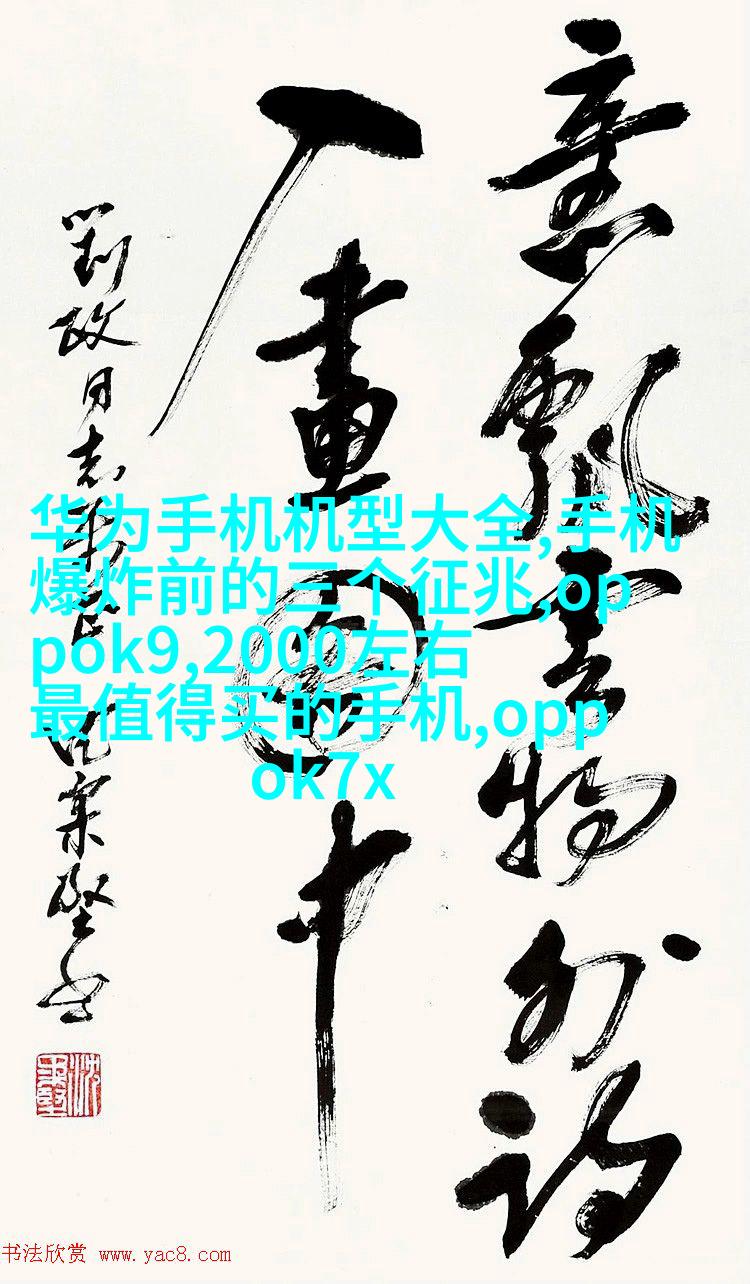 意飄雲物外詩
入畫圖中
劉政同志
华为手机机型大全,手机
爆炸前的三个征兆,op
pok9,2000左右
最值得买的手机,opp
ok7x
书法欣赏 www.yac8.com